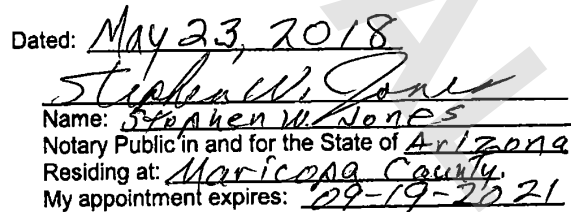 Dated: May 23, 2018
Stephen W. Jones
Name: Stephen W. Jones
Notary Public in and for the State of Arizona
Residing at: Maricopa County.
My appointment expires: 09-19-2021